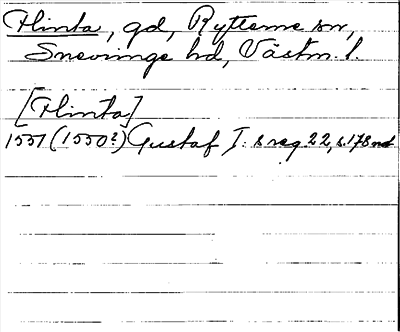 Flinta, gd, Rytterne sn,
Snevringe hd, Västm. l.
[Flinta]
1551 (1550?) Gustaf I:s reg 22, s. 178 not